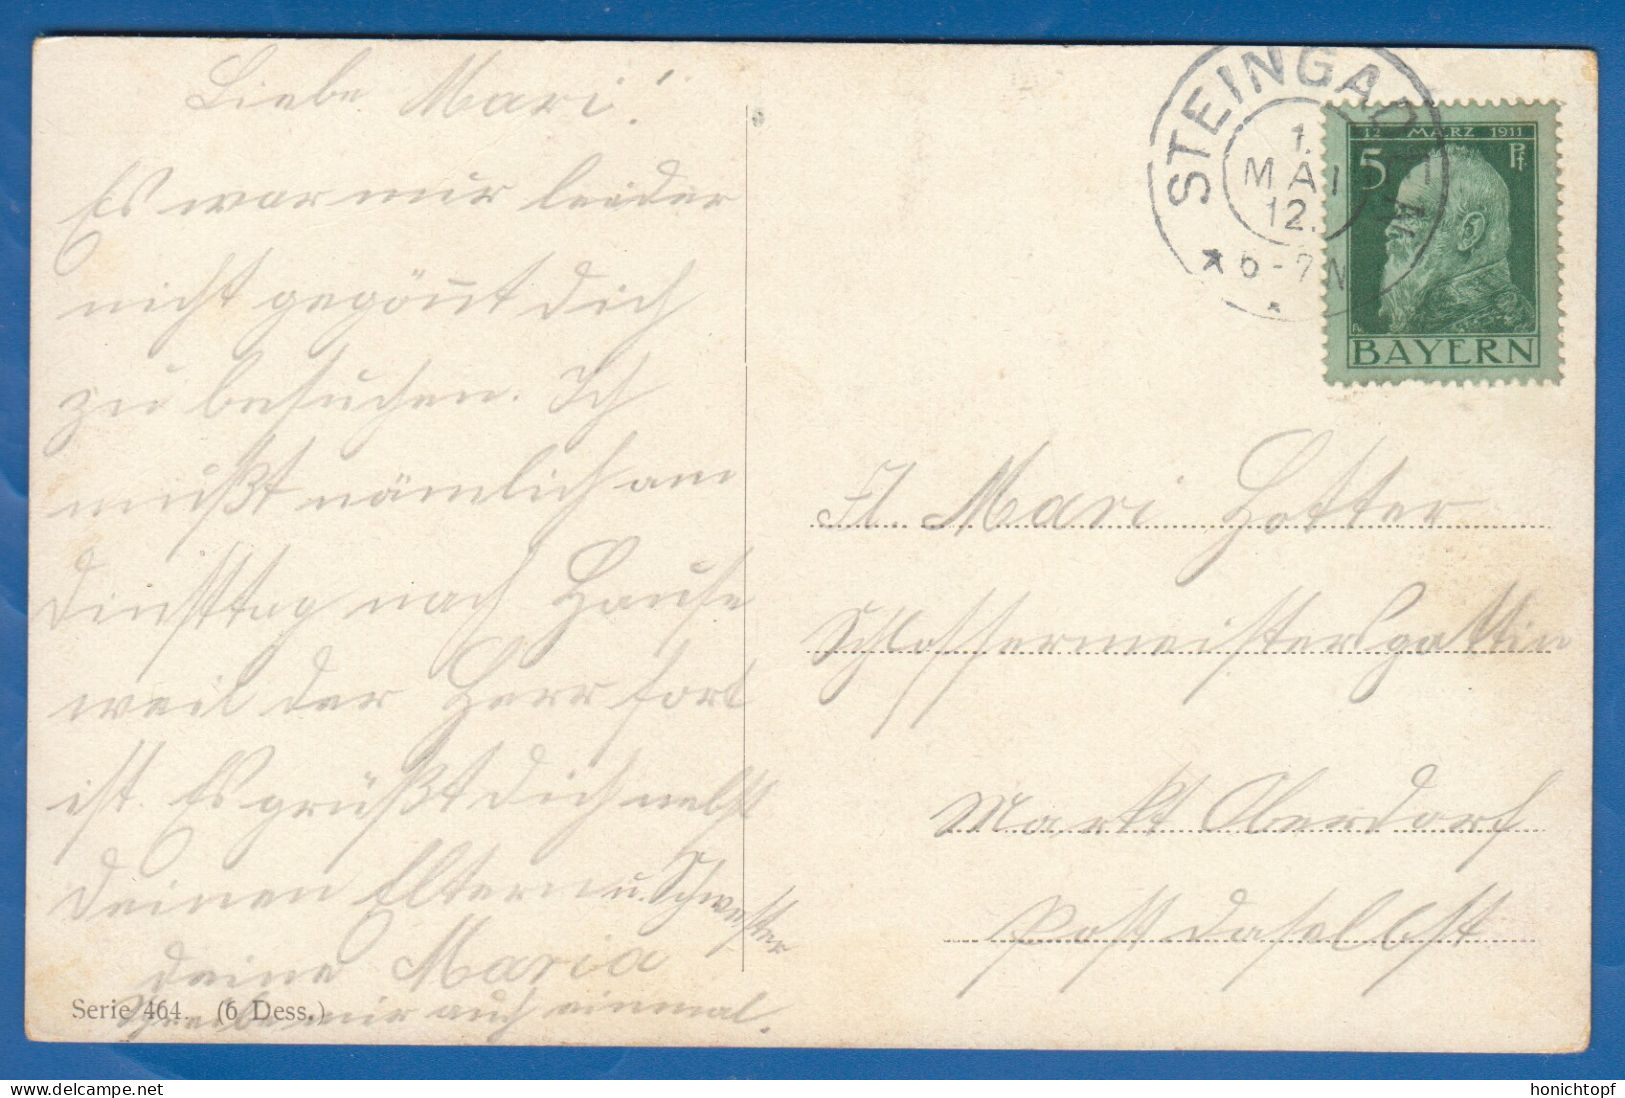 Liebe Mari!
Es war mir leider
nicht gegönnt dich
zu besuchen. Ich
mußt nämlich am
Dinsttag nach Hause
weil der Herr fort
ist. Es grüßt Dich nebst
deinen Eltern u. Schwester
deine Maria
Schreibe mir auch einmal.
Serie 464. (6 Dess.)
STEINGADEN
1.
MAI
12.
6-7N
12 MÆRZ 1911
5 Pf.
BAYERN
Fl. Mari Hotter
Schlossermeistersgattin
Markt Oberdorf
Post daselbst
www.delcampe.net
honichtopf